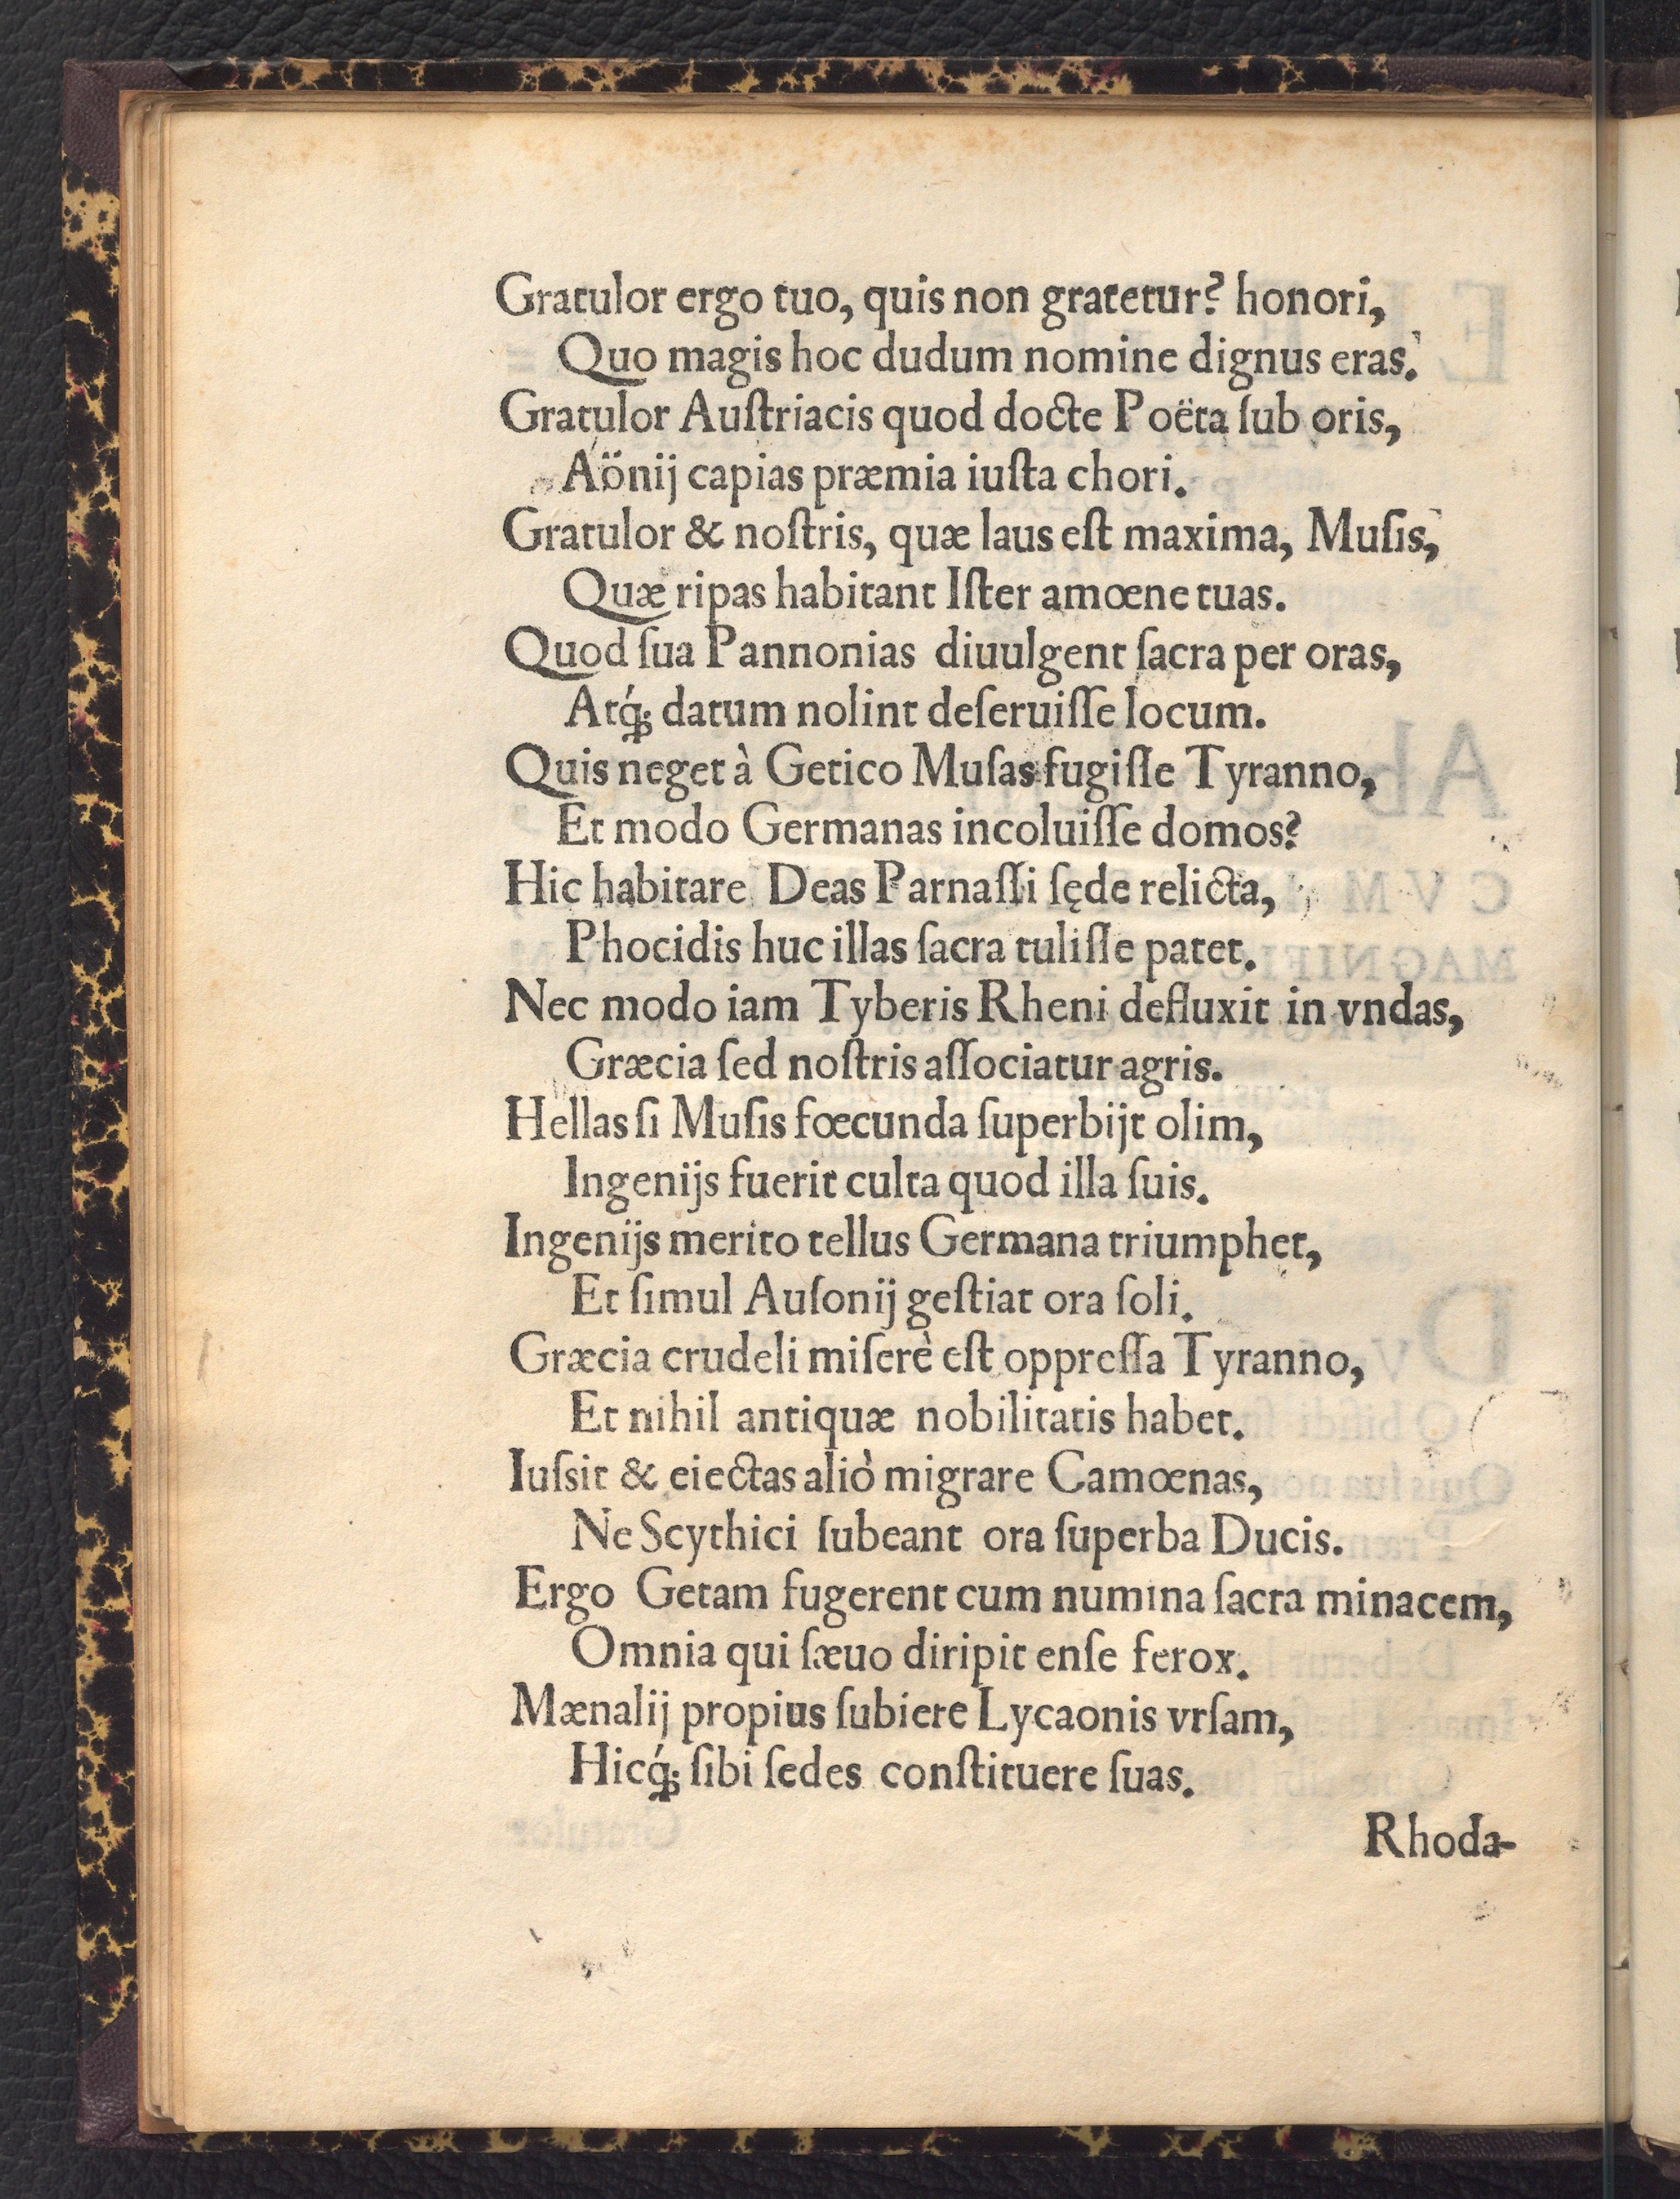 Gratulor ergo tuo, quis non gratetur? honori,
Quo magis hoc dudum nomine dignus eras.
Gratulor Auſtriacis quod docte Poëta ſub oris,
Aönij capias præmia iuſta chori.
Gratulor & noſtris, quæ laus eſt maxima, Muſis,
Quæ ripas habitant Iſter amœne tuas.
Quod ſua Pannonias diuulgent ſacra per oras,
Atq́; datum nolint deſeruiſſe locum.
Quis neget à Getico Muſas fugiſſe Tyranno,
Et modo Germanas incoluiſſe domos?
Hic habitare Deas Parnaſſi ſęde relicta,
Phocidis huc illas ſacra tuliſſe patet.
Nec modo iam Tyberis Rheni defluxit in vndas,
Græcia ſed noſtris aſſociatur agris.
Hellas ſi Muſis fœcunda ſuperbijt olim,
Ingenijs fuerit culta quod illa ſuis.
Ingenijs merito tellus Germana triumphet,
Et ſimul Auſonij geſtiat ora ſoli.
Græcia crudeli miſerè eſt oppreſſa Tyranno,
Et nihil antiquæ nobilitatis habet.
Iuſsit & eiectas aliò migrare Camœnas,
Ne Scythici ſubeant ora ſuperba Ducis.
Ergo Getam fugerent cum numina ſacra minacem,
Omnia qui ſæuo diripit enſe ferox.
Mænalij propius ſubiere Lycaonis vrſam,
Hicq́; ſibi ſedes conſtituere ſuas.
Rhoda-